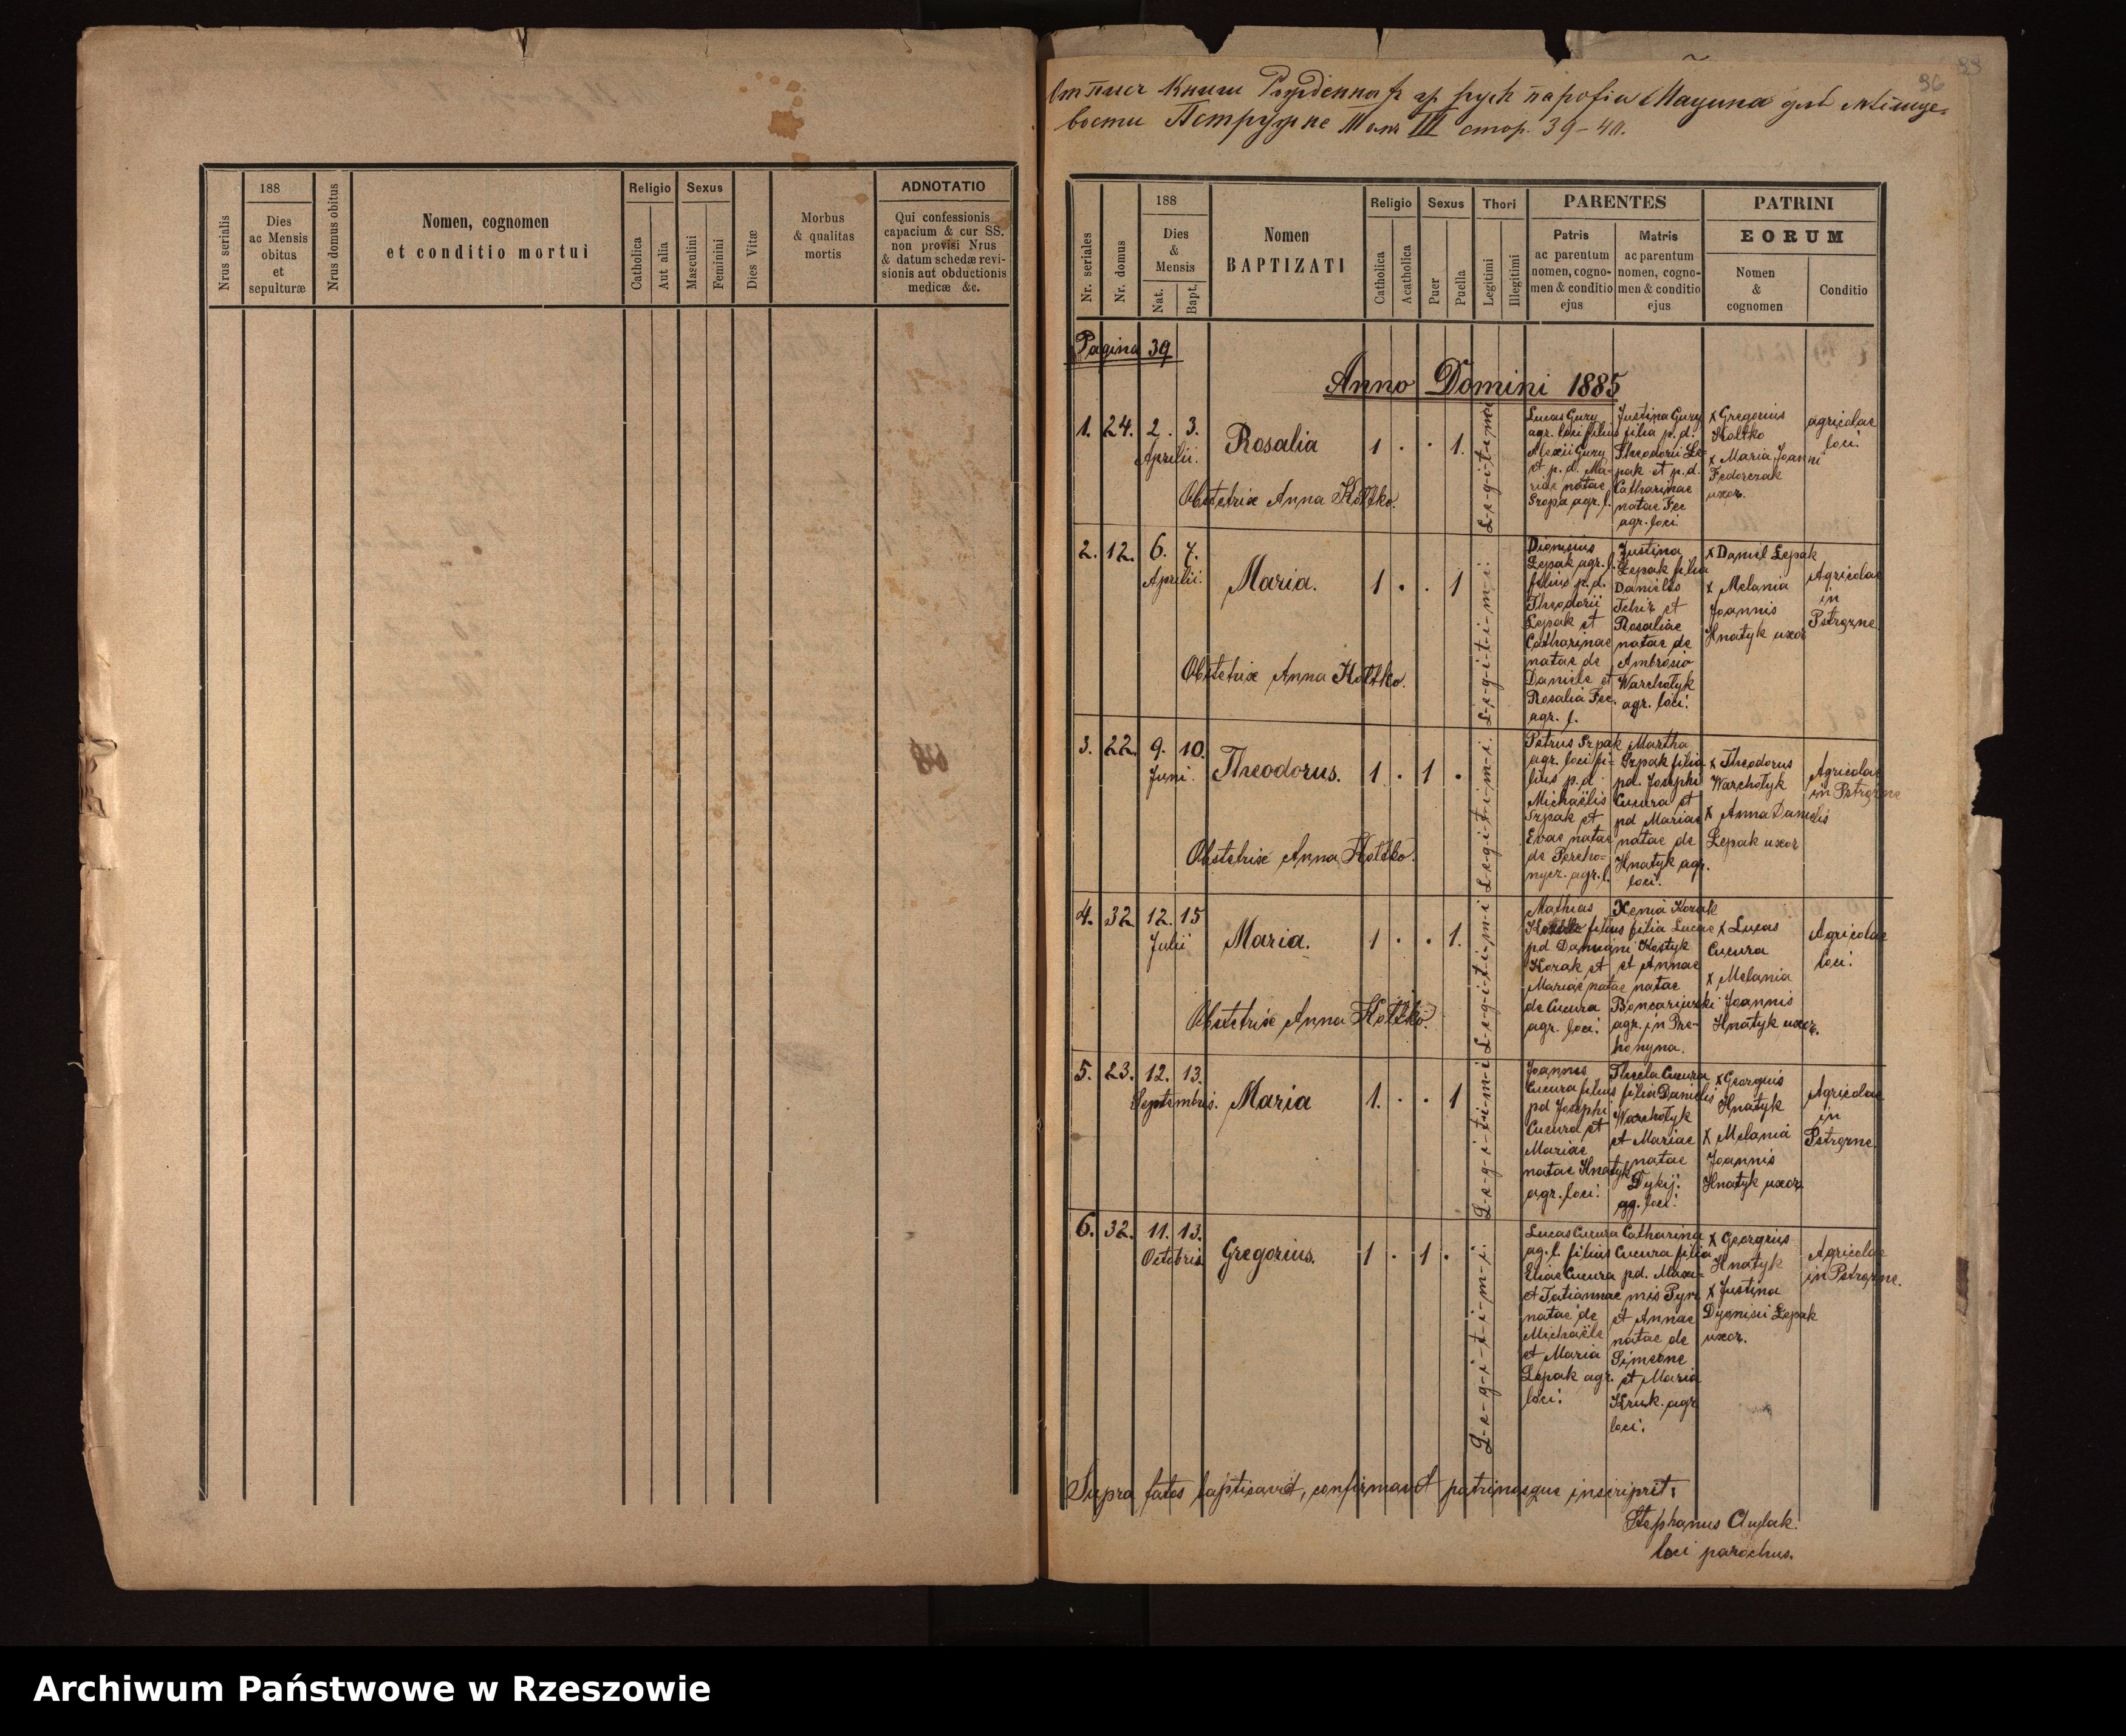 Nrus serialis
188
Dies
ac Mensis
obitus
et
sepulturæ
Nrus domus obitus
Nomen, cognomen
et conditio mortui
Religio
Catholica
Aut alia
Sexus
Masculini
Feminini
Dies Vitæ
Morbus
& qualitas
mortis
ADNOTATIO
Qui confessionis
capacium & cur SS.
non provisi Nrus
& datum schedæ revi-
sionis aut obductionis
medicæ &c.
36
39 – 40.
Nr. seriales
Nr. domus
188
Dies
&
Mensis
Nat.
Bapt.
Nomen
BAPTIZATI
Religio
Catholica
Acatholica
Sexus
Puer
Puella
Thori
Legitimi
Illegitimi
PARENTES
Patris
ac parentum
nomen, cogno-
men & conditio
ejus
Matris
ac parentum
nomen, cogno-
men & conditio
ejus
PATRINI
EORUM
Nomen
&
cognomen
Conditio
Pagina 39
Anno Domini 1885
1. 24. 2. 3.
Aprilii.
Rosalia
1 · · 1.
L-e-g-i-t-i-m-i
Lucas Gury
agr. loci filius
Alexii Gury
et p. d. Ma-
riae natae
agr. l.
Justina Gury
filia p. d.
Theodorii Le-
pak et p. d.
Catharinae
natae Fec
agr. loci
x Gregorius
Koltko
x Maria Joanni
Fedorczak
uxor.
agricolae
loci.
Obstetrix Anna Koltko.
2. 12. 6. 7.
Aprilii.
Maria.
1 · · 1
L-e-g-i-t-i-m-i.
Dionisius
Lepak agr. l.
filius p. d.
Theodorii
Lepak et
Catharinae
natae de
Daniele et
Rosalia Fec.
agr. l.
Justina
Lepak filia
Danielis
et
Rosaliae
natae de
Ambrosio
Warchołyk
agr. loci.
x Daniel Lepak
x Melania
Joannis
Hnatyk uxor
Agricolae
in
Pstrązne
Obstetrix Anna Koltko.
3. 22. 9. 10.
Juni.
Theodorus.
1 · 1 ·
L-e-g-i-t-i-m-i.
Petrus Szpak
agr. loci fi-
lius p. d.
Michaëlis
Szpak et
Evae natae
de Percho-
nycz. agr. l.
Martha
Szpak filia
pd. Josephi
Cucura et
pd Mariae
natae de
Hnatyk agr.
loci.
x Theodorus
Warchołyk
x Anna Danielis
Lepak uxor
Agricolae
in Pstrązne
Obstetrix Anna Koltko.
4. 32 12. 15
Julii
Maria.
1 · · 1.
L-e-g-i-t-i-m-i
Mathias
filius
pd Damiani
Kozak et
Mariae natae
de Cucura
agr. loci.
Xenia Kozak
filia Lucae
Kostyk
et Annae
natae
agr. in Pre-
honyna.
x Lucas
Cucura
x Melania
Joannis
Hnatyk uxor.
Agricolae
loci.
Obstetrix Anna Koltko.
5. 23. 12. 13.
Septembris.
Maria
1. · · 1
L-e-g-i-t-i-m-i
Joannes
Cucura filius
pd Josephi
Cucura et
Mariae
natae Hnatyk
agr. loci.
Thecla Cucura
filia Danielis
Warchołyk
et Mariae
natae
Dykij.
ag. loci.
x Georgius
Hnatyk
x Melania
Joannis
Hnatyk uxor
Agricolae
in
Pstrązne
6. 32. 11. 13.
Octobris
Gregorius.
1 · 1 ·
L-e-g-i-t-i-m-i.
Lucas Cucura
ag. l. filius
Eliae Cucura
et Tatiannae
natae de
Michaële
et Maria
Lepak agr.
loci.
Catharina
Cucura filia
pd. Maxi-
mis Pyrz
et Annae
natae de
Simeone
et Maria
Kruk. agr
loci.
x Georgius
Hnatyk
x Justina
Dyonisii Lepak
uxor.
Agricolae
in Pstrązne.
Supra fatos baptisavit, confirmavit patrinosque inscripsit:
Stephanus
loci parochus.
Archiwum Państwowe w Rzeszowie